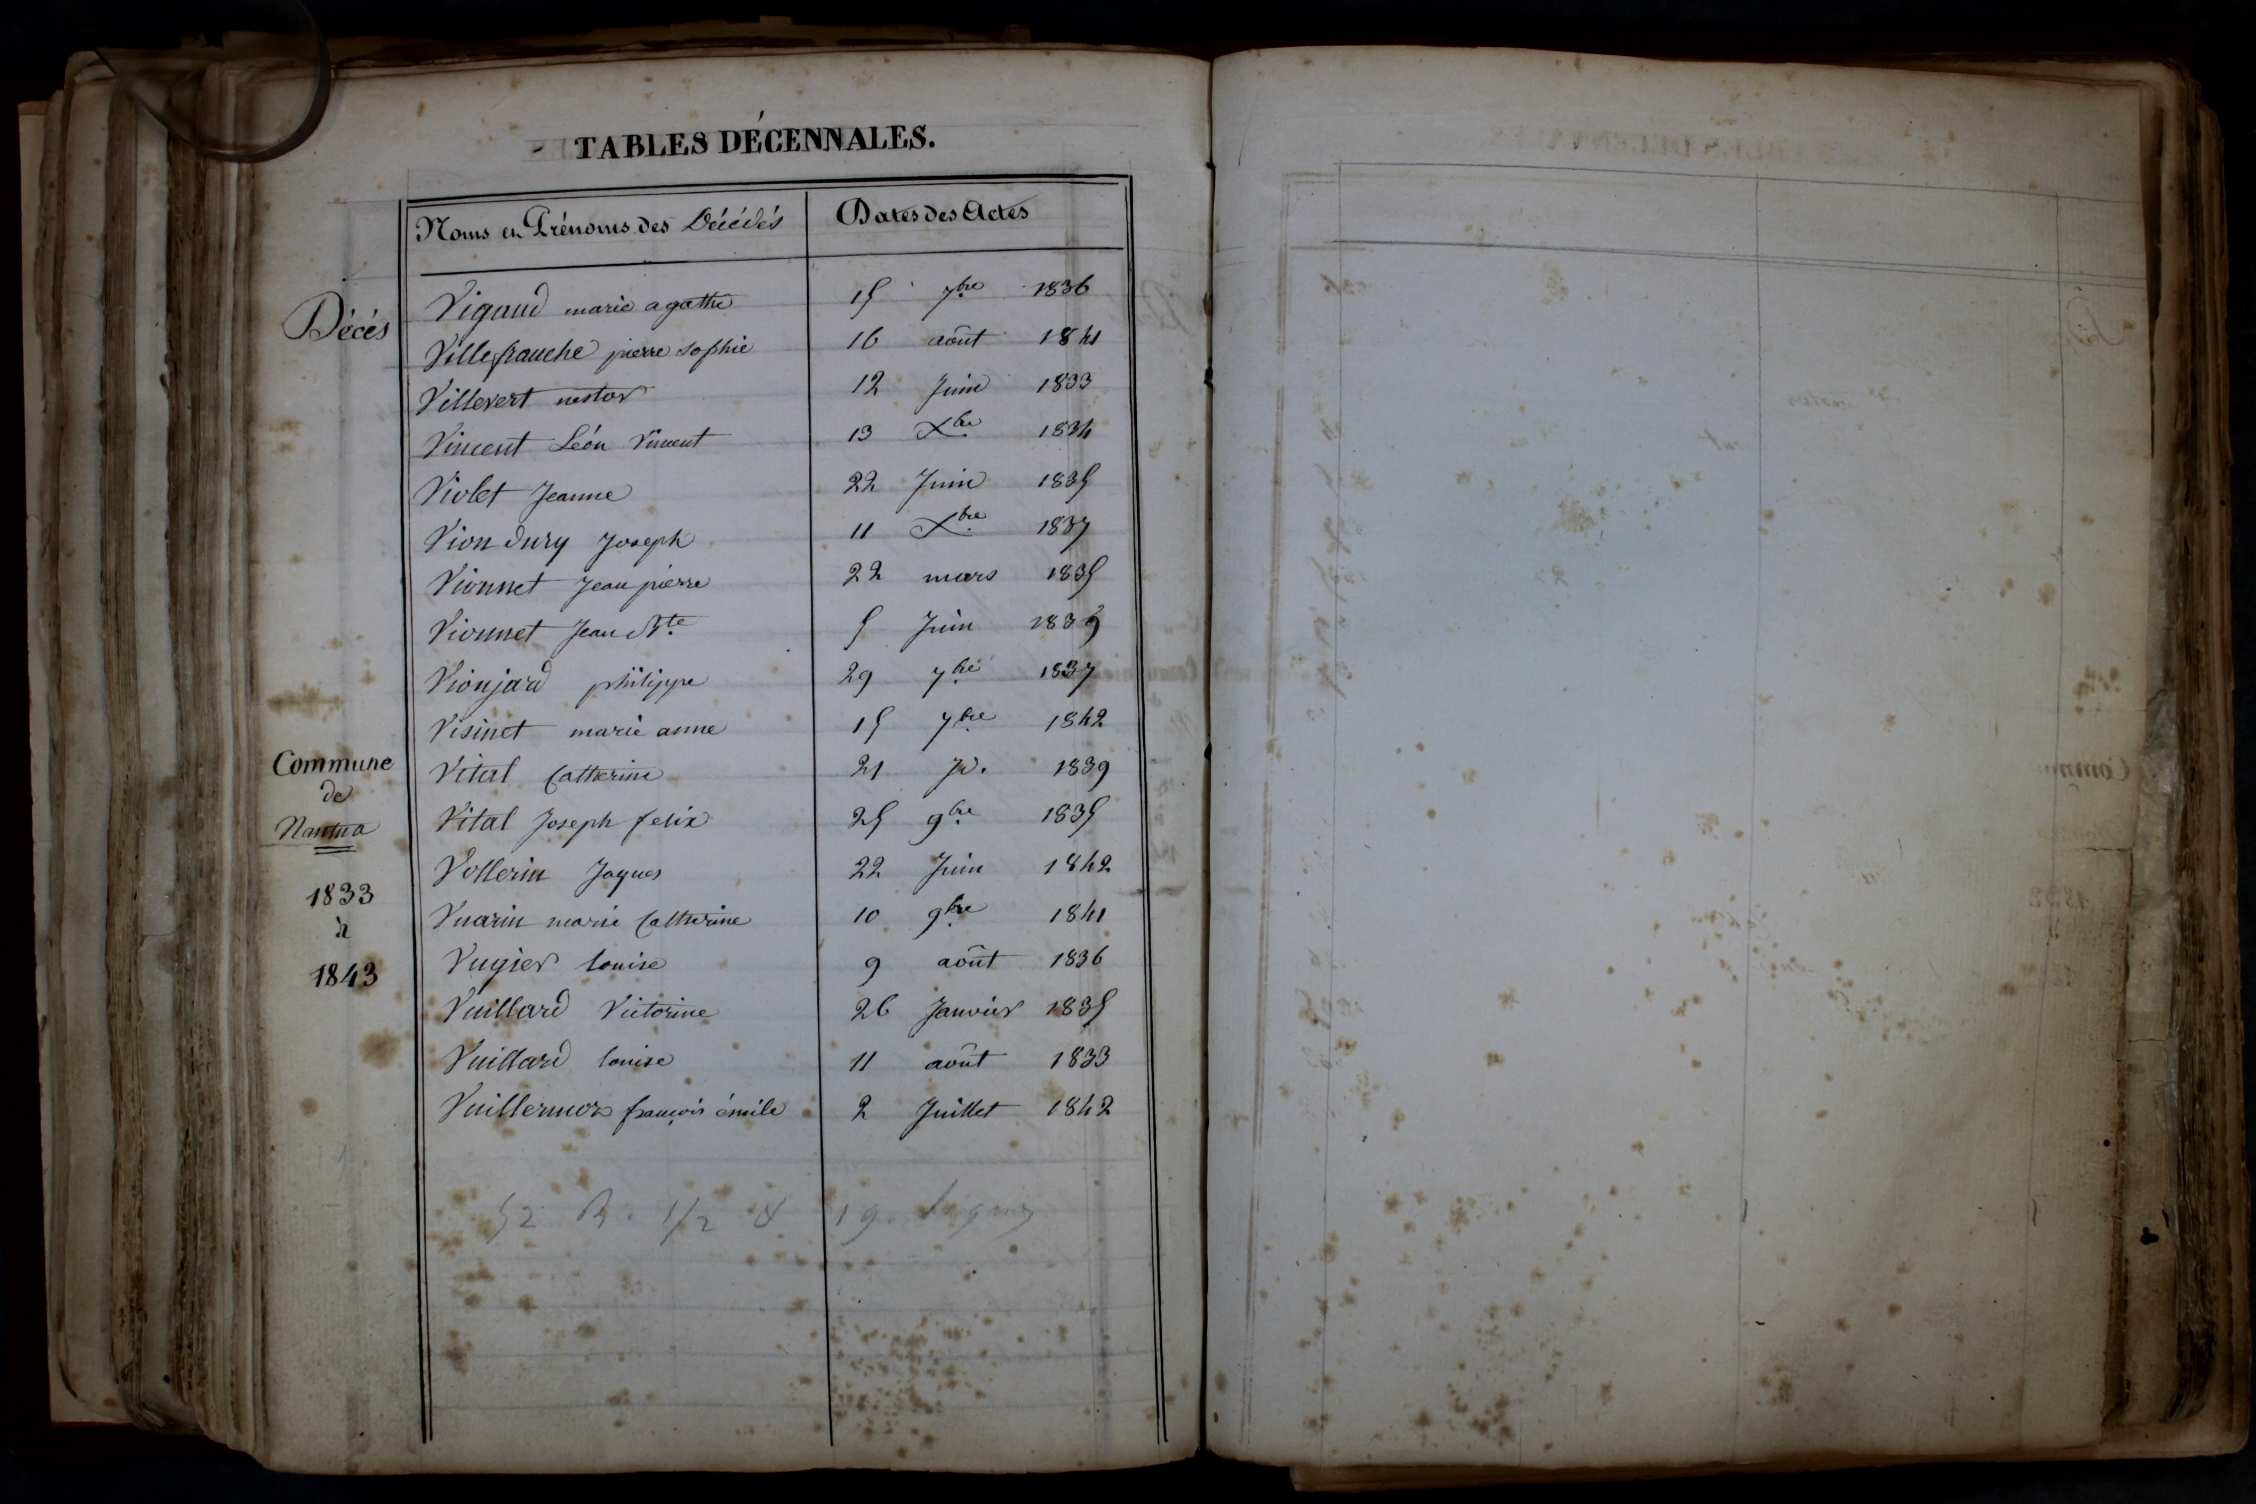 TABLES DÉCENNALES.
Noms et Prénoms des Décédés Dates des Actes
Décés
Vigaud marie agathe 15 7bre 1836
Villefranche pierre sophie 16 août 1841
Villevert nestor 12 Juin 1833
Vincent Léon Vincent 13 Xbre 1834
Violet Jeanne 22 Juin 1835
Vion dury Joseph 11 Xbre 1837
Vionnet Jean pierre 22 mars 1835
Vionnet Jean Bte 5 Juin 1839
Vionjard philippe 29 7bre 1837
Visinet marie anne 15 7bre 1842
Vital Catherine 21 1839
Vital Joseph felix 25 9bre 1835
Vollerin Jaques 22 Juin 1842
Vuarin marie Catherine 10 9bre 1841
Vugier Louise 9 août 1836
Vuillard Victorine 26 Janvier 1835
Vuillard Louise 11 août 1833
Vuillermoz françois émile 2 Juillet 1842
Commune
de
Nantua
1833
à
1843
52 R. 1/2 & 19 lignes